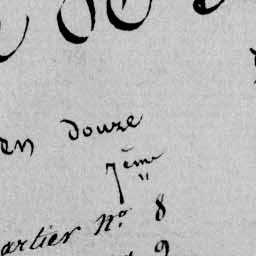 en douze
7ème
artier No. 8
9